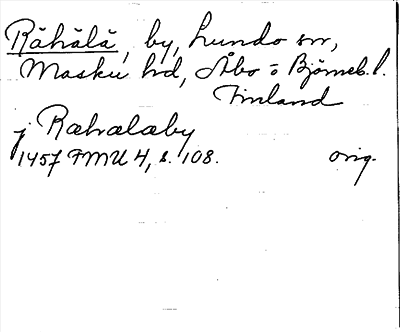 Rähälä, by, Lundo sn,
Masku hd, Åbo o Björneb. l.
Finland
j Ræhælæby
1457 FMU 4, s. 108. orig.